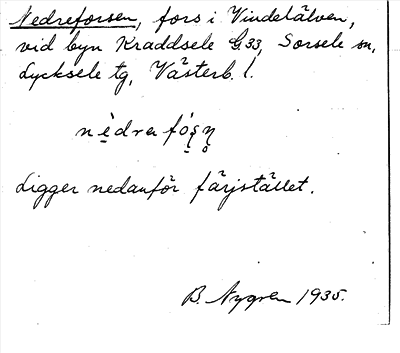 Nedreforsen, fors i Vindelälven,
vid byn Kraddsele G33, Sorsele sn,
Lycksele tg, Västerb. l.
nèdrafó̱ṣn̥
Ligger nedanför färjstället.
B. Nygren 1935.